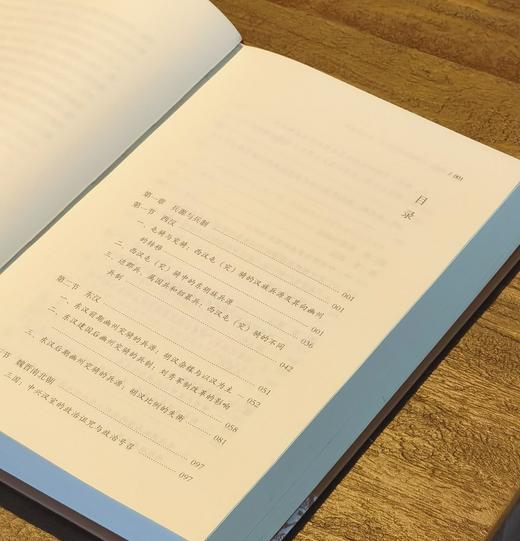 / 001
目录
第一章 兵源与兵制
第一节 西汉 001
一、屯骑与突骑：西汉屯（突）骑的汉族兵源发其向幽州
的转移 001
二、西汉屯（突）骑中的东胡族兵源 036
三、边郡兵、属国兵和招募兵：西汉屯（突）骑的不同
兵制 042
第二节 东汉 051
一、东汉前期幽州突骑的兵源：胡汉杂糅与以汉为主 052
二、东汉建国后幽州突骑的兵制：刘秀军制改革的影响 058
三、东汉后期幽州突骑的兵源：胡汉比例的失衡 081
节 魏晋南北朝 097
三国：中兴汉室的政治诅咒与政治号召 097